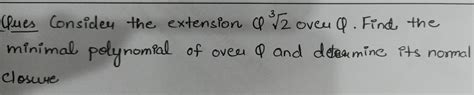 Ques Consider the extension Q ∛2 over Q. Find the
minimal polynomial of over Q and determine its normal
closure